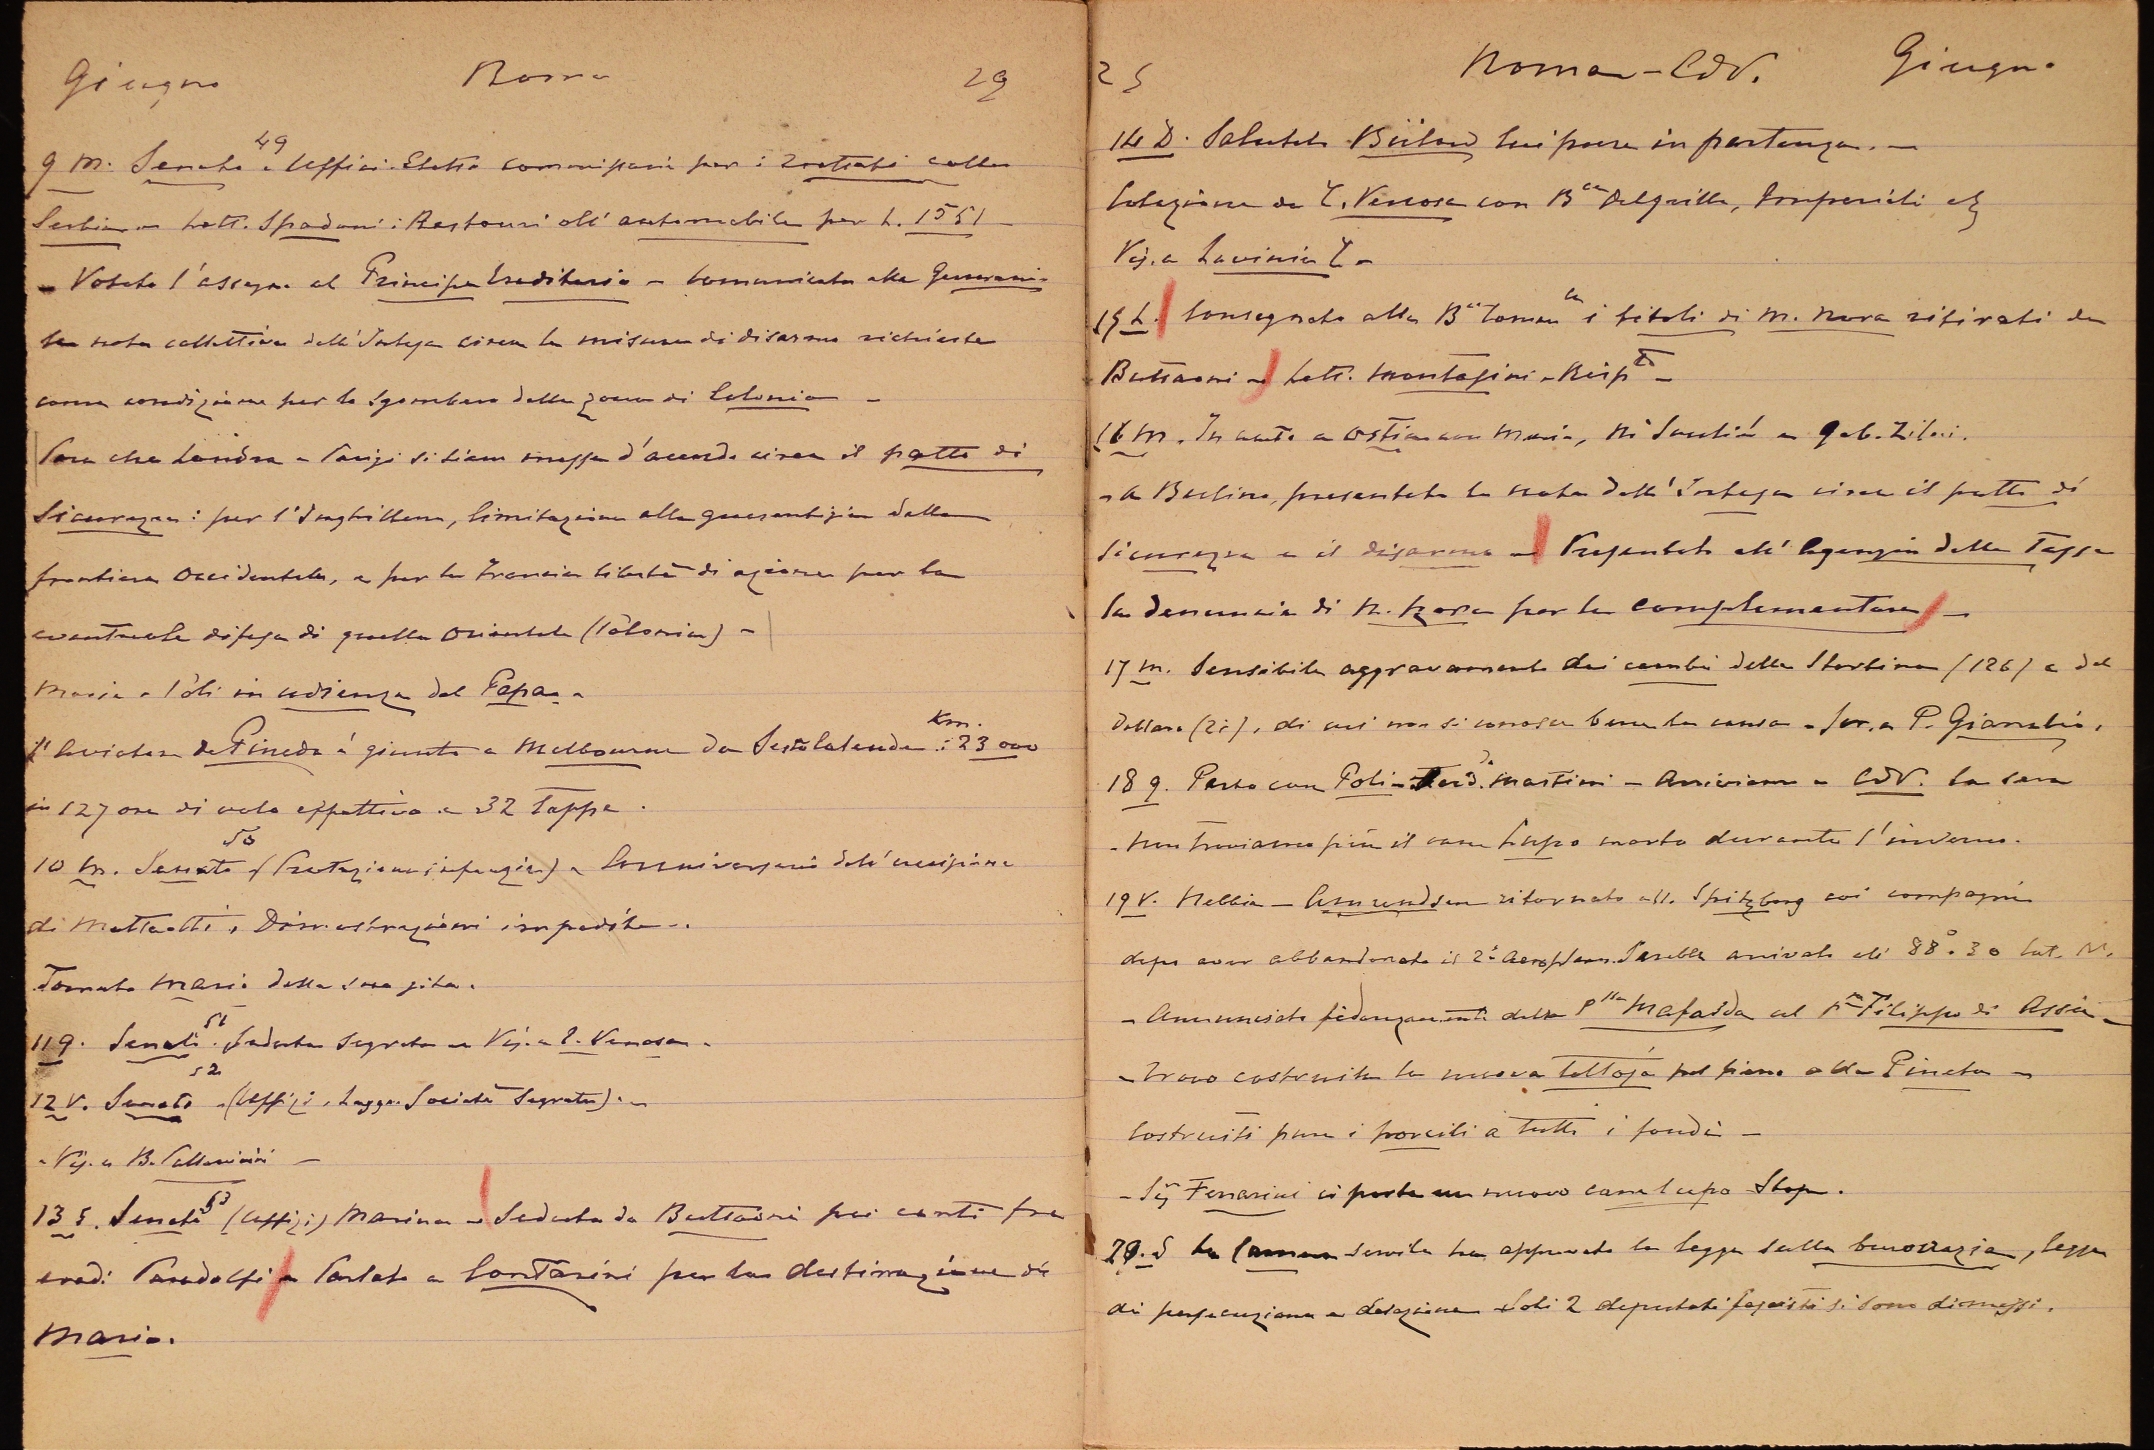 Giugno Roma 29
9 M. Senato 49 Uffici. Eletto commissari per i trattati colla
Serbia – Lett. Spadoni: Restauri all'automobile per L. 1551 –
– Votato l'assegno al Principe Ereditario – Comunicata alla Germani-
la nota collettiva dell'Intesa circa le misure di disarmo richieste
come condizione per lo sgombero della zona di Colonia –
Pare che Londra e Parigi si siano messe d'accordo circa il patto di
Sicurezza: per l'Inghilterra, limitazione alla guarentigia della
frontiera Occidentale, e per la Francia libertà di azione per la
eventuale difesa di quella Orientale (Polonia) –
Maria e Poli in udienza dal Papa –
L'aviatore de Pinedo è giunto a Melbourne da Sesto Calende: Km. 23 000
in 127 ore di volo effettivo e 32 tappe.
10 M. Senato 50 (Protezione infanzia) – Anniversario dell'uccisione
di Matteotti, Dimostrazioni impedite –.
Tornato Mario dalla sua gita.
11 G. Senato 51. Seduta segreta – Vis. a T. Venosa –
12 V. Senato 52 – (Uffizi, Legge Società Segrete). –
– Vis. a B. Pallavicini –
13 S. Senato 53 (Uffizi) Marina – Seduta da Buttaoni pei conti fra
eredi Pandolfi – Parlato a Contarini per la destinazione di
Mario.
25 Roma – CdV. Giugno
14 D. Salutato Bülow lui pure in partenza. –
Colazione da T. Venosa con B.ca Delgrillo, Imperiali etc
Vis. a Lavinia T –
15 L. Consegnato alla B.ca i titoli di M. Nora ritirati da
Buttaoni – Lett. Montasini – Risp.to –
16 M. In auto a Ostia con Maria,
– A Berlino, presentata la nota dell'Intesa circa il patto di
sicurezza e il disarmo – Presentato all'Agenzia delle Tasse
la denuncia di N. Nora per la complementare –
17 M. Sensibile aggravamento dei cambi della Sterlina (126) e del
dollaro (26), di cui non si conosce bene la causa –
18 G. Parto con Poli – Martini – Arriviamo a CdV. la sera
– Non troviamo più il cane Lupo morto durante l'inverno.
19 V. Nebbia – Amundsen ritornato allo Spitzberg coi compagni
dopo aver abbandonato il 2° aeroplano. Sarebbe arrivato agli 88°. 30 Lat. N.
– Annunciato fidanzamento della P.ssa Mafalda al P.pe Filippo di Assia –
– Trovo costruita la nuova tettoja pel fieno alla Pineta –
Costruiti pure i porcili a tutti i fondi –
– Sig. Ferrarini ci porta un nuovo cane lupo Stop.
20. S La Camera servile ha approvato la legge sulla burocrazia, legge
di persecuzione e delazione Soli 2 deputati fascisti si sono dimessi.